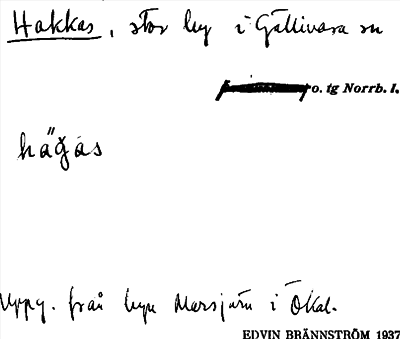 Hakkas, stor by i Gällivara sn
o. tg Norrb. l.
häğás
Uppg. från byn Marsjärv i Ökal.
EDVIN BRÄNNSTRÖM 1937